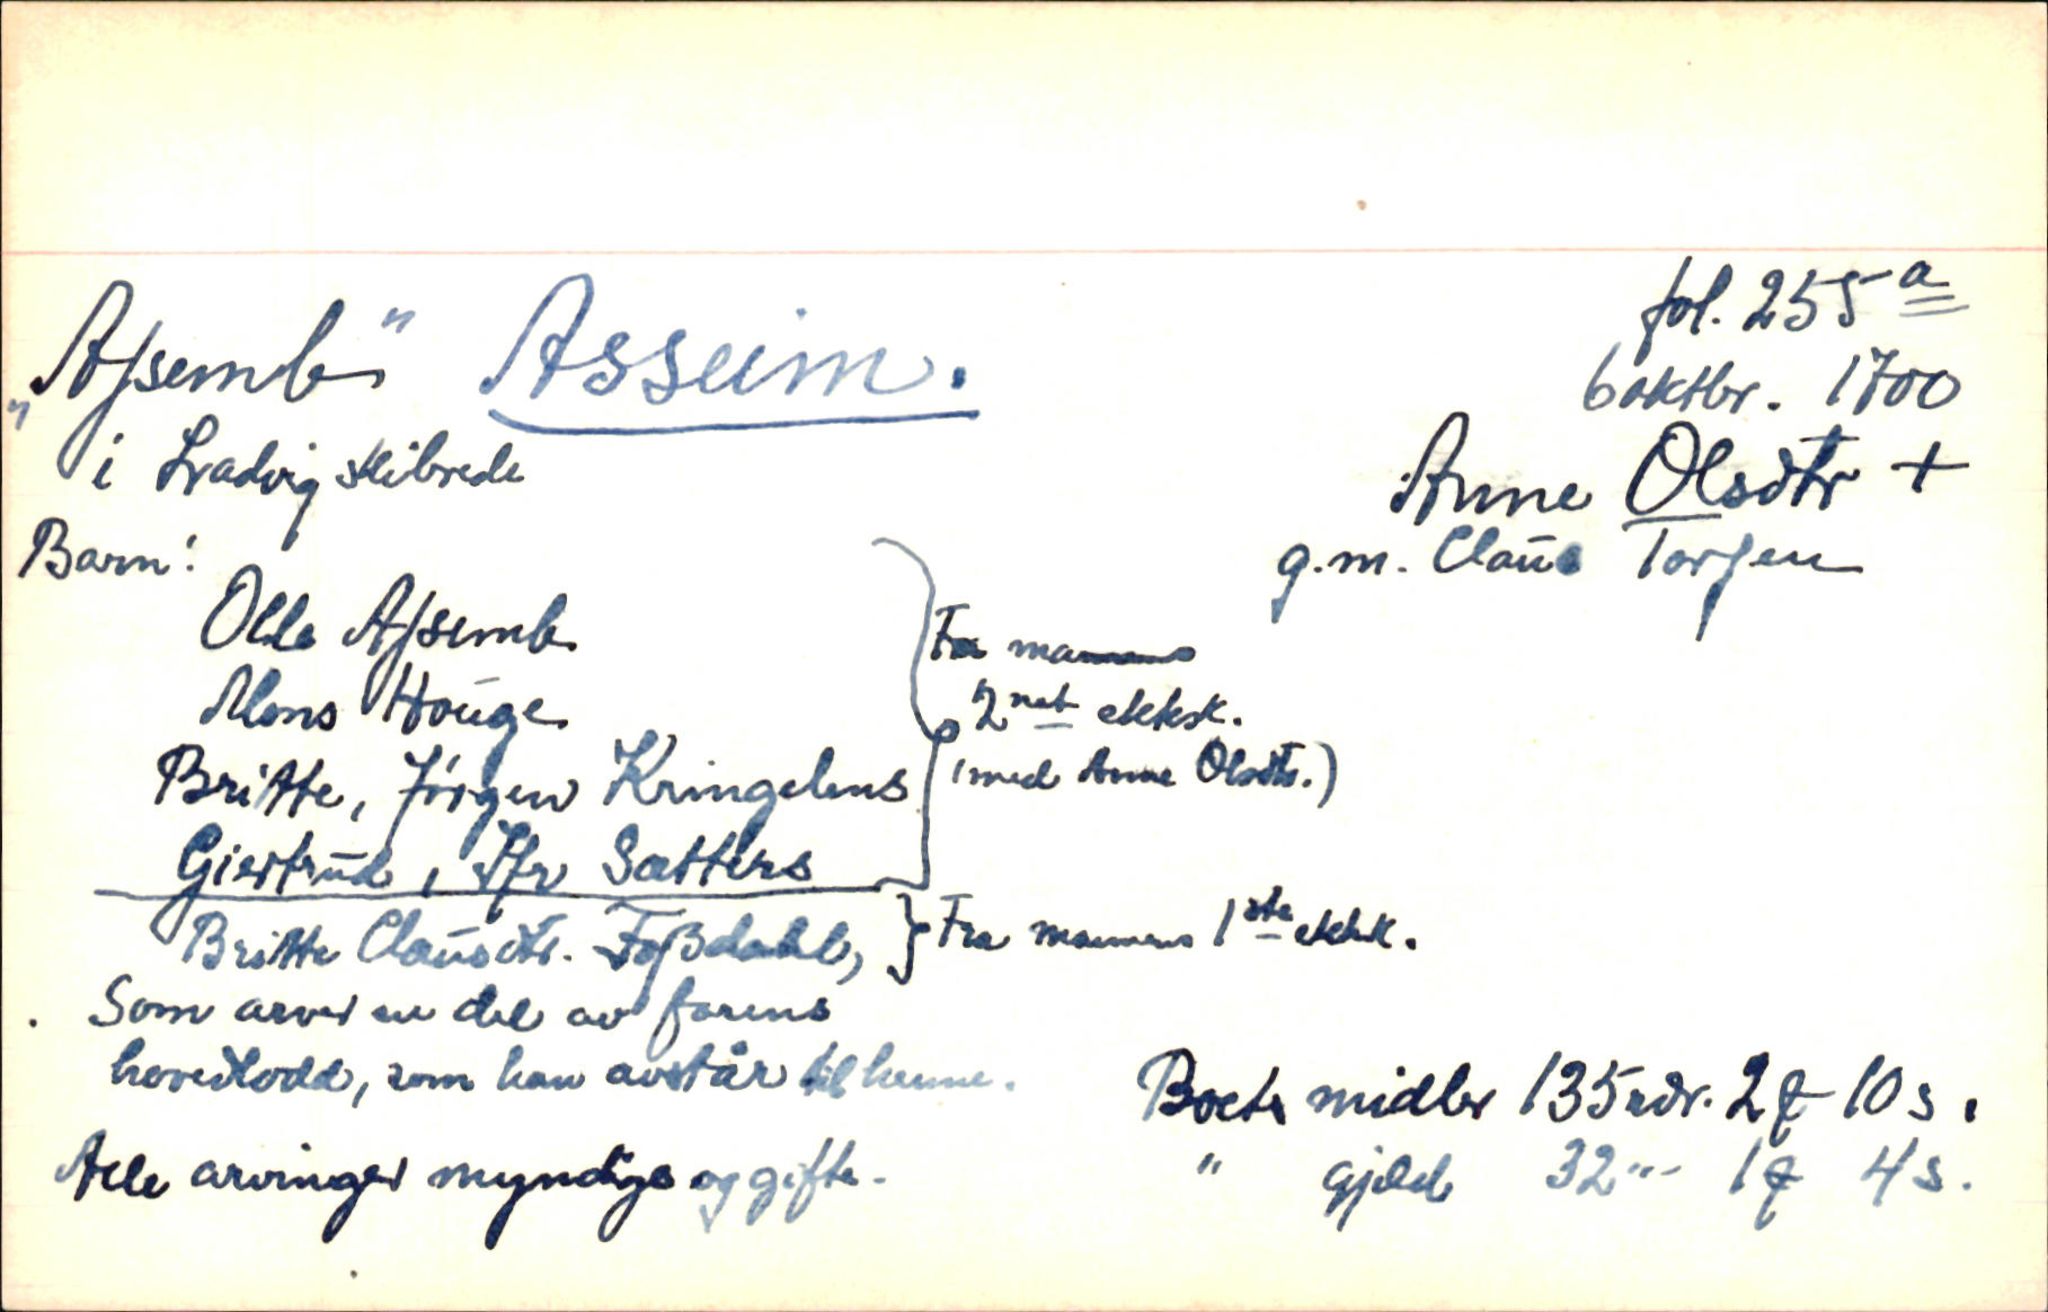 fol. 255 a
"Assemb" Asseim.
6 oktbr. 1700
i Lradvig skibrede
Anne Olsdtr +
g.m. Claūs Torsen
Barn:
Olle Assemb
Mons Houge
Fra mannens
2net ektsk.
Britte, Jörgen Kringelens
(med Anne Olsdtr.)
Giertrūd, Ifr Sætters
Britte Claūsdtr. Foßdahl,
Fra mannens 1ste ektsk.
Som arver en del av farens
hovedlodd, som han avstår til henne.
Boets midler 135 rdr. 2 ƒ 10 s.
Alle arvinger myndige og gifte.
" gjeld 32 " 1 ƒ 4 s.